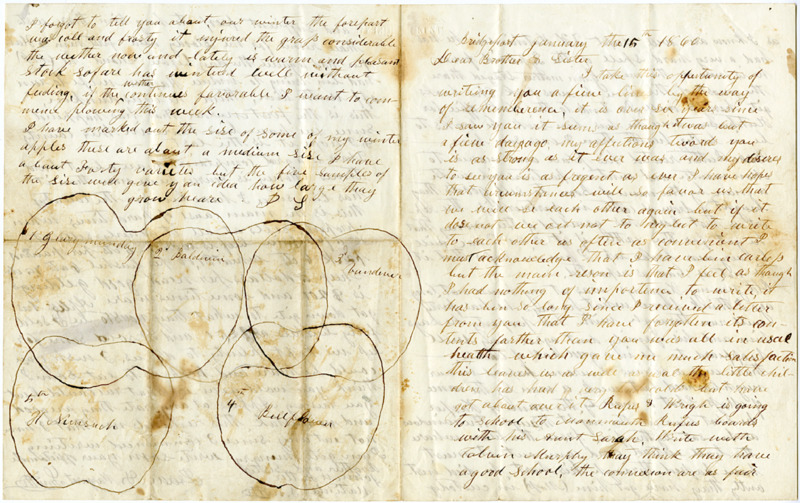 I forgot to tell you about our winter the forepart
was coll and frosty it injured the grass considerable
the wether now and lately is warm and pleasant
stock so fare has wintred well without
feeding, if the wether continues favorable I want to com-
mence plowing this week.
I have marked out the sise of some of my winter
apples these are about a medium sise I have
about Forty varieties but the five samples of
the sise will give you an idea how large they
grow heare P S
1 Gloriamunday
2d Baldwin
3d
5th
4th Bellflower
Bridgeport January the 15th 1860
Dear Brother & Sister
I take this opportunity of
writing you a fiew lines by the way
of rememberence, it is over six years since
I saw you it seems as though twas but
a fiew days ago, my affections towards you
is as strong as it ever was and my desires
to see you is as frequent as ever I have hopes
that circumstances will so favor us that
we will se each other again but if it
does not we oct not to neglect to write
to each other as often as convenient I
must acknowledge that I have bin carless
but the main reson is that I feel as though
I had nothing of importence to write, it
has bin so long since I received a letter
from you that I have forgotten its con-
tents farther than you was all in usal
health which gave me much satisfaction
this leaves us as well as usal the little chil-
dren has had a very
got about over it Rufus & Wrigh is going
to school to Monmouth Rufus boards
with his Aunt Sarah, Write with
Calvin Murphy they think they have
a good school, the connexion are as fair